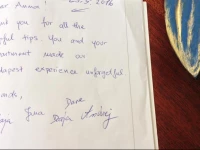 ar Anna! 25.3.2016
nk you for all the
pful tips. You and your
partment made our
dapest experience unforgetful
Dave
Jana Dasa Andrej